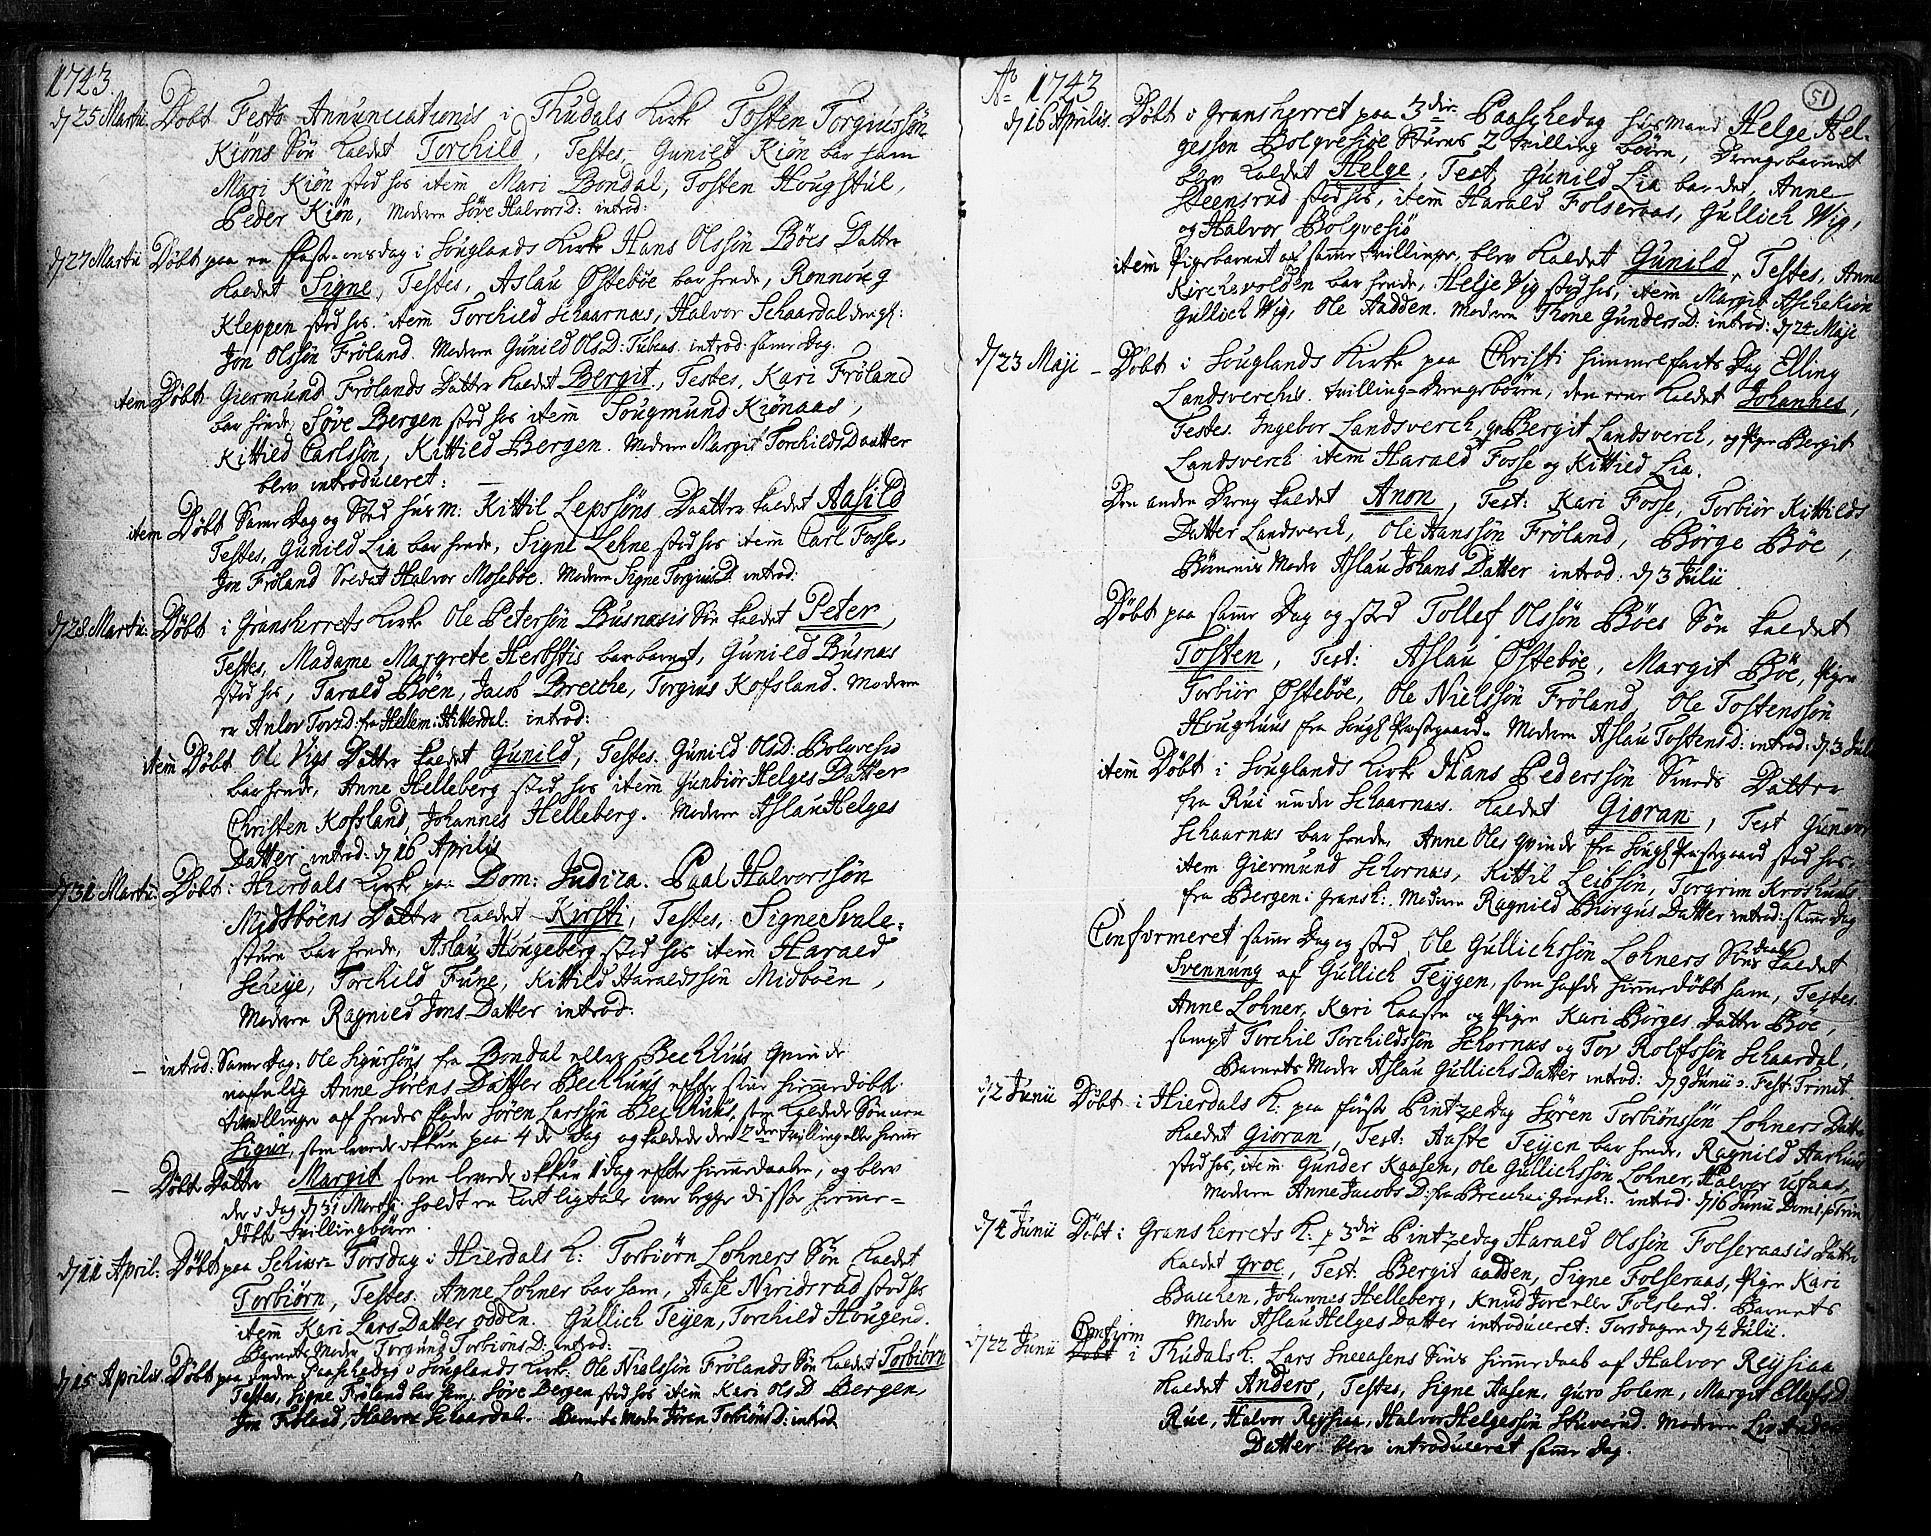 1743.
d 25 Martii. Døbt Festo Annunciationis i Thudals Kirke Tosten Torgiussøn
Kiøns Søn kaldet Torchild, Testes, Gunild Kiøn bar ham
Mari Kiøn stod hos item Mari Bondal, Tosten Hougstul,
Peder Kiøn, Moderen Søve HalvorsD: introd:
d 27 Martii Døbt paa en faste-onsdag i Souglands Kirke Hans Olssøn Böes Datter
kaldet Signe, Testes, Aslau Østebøe bar hende, Ronnoug
Kleppen stod hos. item Torchild Schaarnæs, Halvor Schaardal
Jon Olssøn Frøland. Moderen Gunild OlsD: introd: samme Dag.
item Døbt Giermund Frølands Datter kaldet Bergit, Testes, Kari Frøland
bar hende, Søve Bergen stod hos item Sougmund Kiønaas,
Kittild Carlssøn, Kittild Bergen. Moderen Margit Torchilds Daatter
blev introduceret:
item Døbt Samme Dag og Sted Husm: Kittil Lepssøns Daatter kaldet Aasild
Testes, Gunild Lia bar hende, Signe Lehne stod hos item Carl Fosse,
Jon Frøland Soldat Halvor Mosebøe. Moderen Signe TorgiusD: introd:
d 28 Martii: Døbt i Gransherrets Kirke Ole Petersøn Busnæsis Søn kaldet Peter,
Testes, Madame Margrete Herbstis bar barnet, Gunild Busnæs
stod hos, Tarald Böen, Jacob Breche, Torgius Kofsland. Moderen
er Anlov TovsD: fra Hellem: Hitterdal: introd:
item Døbt Ole Vigs Datter kaldet Gunild, Testes. Gunild OlsD: Bolvesio
bar hende, Anne Helleberg stod hos item Gunbior Helges Datter
Christen Kofsland, Johannes Helleberg. Moderen Aslau Helges
Datter introd: d 16 Aprilis
d 31 Martii: Døbt i Hierdals Kirke paa Dom: Judica. Paal Halvorssøn
Midtbøens Datter kaldet Kirsti, Testes. Signe Sule-
sture bar hende, Aslau Hougeberg stod hos item Harald
Scheje, Torchild Fune, Kittild Haraldssøn Midbøen,
Moderen Ragnild Jons Datter introd:
- introd: Samme Dag: Ole Sigurssøns fra Bondal eller Bechhuus Qvinde
nafnlig Anne Sørens Datter Bechhuus efter sine hiemmedøbte
tvillinger af hendes Fader Søren Larssøn Bechhuus, som kaldede Sønnen
Sigur, som levede ikkun paa 4de Dag og kaldede den 2den tvilling eller hiemme
- Døbte Datter Margit som levede ikkun 1 dag efter hiemmedaaben, og blev
der i dag d 31 Martii holdt en Liigtale over begge disse hiemme-
døbte tvillingbørn.
d 11 April: Døbt paa Schier Torsdag i Hierdals K: Torbiørn Lohners Søn kaldet
Torbiørn, Testes: Anne Lohner bar ham, Aase Nirisrud stod hos
item Kari Lars Datter odden. Gullich Teijen, Torchild Hougen.
Barnets Moder Torgund Torbiøns D: introd:
d 15 Aprilis. Døbt paa anden Paaschedag i Souglands Kirk. Ole Nielssøn Frølands Søn kaldet Torbiörn
Testes, Signe Frøland bar ham, Søve Bergen stod hos item Kari OlsD Bergen,
Jon Frøland, Halvor Schaardal. Barnets Moder Jøren TorbiønsD: introd

51
Ao 1743
d 16 Aprilis. Døbt i Gransherret paa 3die Paaschedag husmand Helge Hel-
gessøn Bolgvesiøe Sturns 2 tvilling børn, Drengebarnet
blev kaldet Helge, Test Gunild Lia bar det, Anne
Steensrud stod hos, item Harald Folseraas, Gullich Wig,
og Halvor Bolgvesiø
item Pigebarnet af samme tvillinger, blev kaldet Gunild, Testes. Anne
Kirchevolden bar hende, Helje Vig stod hos, item Margit Aslachsdtr
Gullich Wig, Ole Aadden. Moderen Thone GundersD: introd: d 24 Maji
d 23 Maji - Døbt i Souglands Kirke paa Christi Himmelfarts Dag Elling
Landsverchis tvilling-Drengebørn, den eene kaldet Johannes,
Testes. Ingebor Landsverch, Bergit Landsverch, og Pigen Bergit
Landsverch item Harald Fosse og Kittild Lia.
Den anden Dreng kaldet Anon, Test: Kari Fosse, Torbiør Kittilds
Datter Landsverch, Ole Hanssøn Frøland, Børge Bøe,
Børnenis Moder Aslau Johans Datter introd: d 3 Julii
Døbt paa samme Dag og sted Tollef Olssøn Böes Søn kaldet
Tosten, Test: Aslau Østebøe, Margit Bøe, Pigen
Torbiör Østebøe, Ole Nielssøn Frøland, Ole Tostenssön
Houghuus fra Sougl: Præstegaard. Moderen Aslau TostensD: introd: d 3 Julii
item Døbt i Souglands Kirke Hans Pederssøn Smeds Datter
fra Rui under Schaarnæs. kaldet Gioran, Test Gunvor
Schaarnæs bar hende, Anne Oles Qvinde fra Sougl: Præstegaard stod hos,
item Giermund Schornæs, Kittil Leibsøn, Torgrim Kroshuus
fra Bergen i Gransh: Moderen Ragnild Biørgus Datter introd: samme Dag
Confirmeret samme Dag og sted Ole Gullichssøn Lohners Søns daab kaldet
Svennung af Gullich Teygen, som hafde hiemmedøbt ham, Testes.
Anne Lohner, Kari Kaasa og Pigen Kari Börges Datter Böe,
sampt Torchil Torchildssøn Schornæs og Tov Rolfssøn Schaardal,
Barnets Moder Aslau Gullichs Datter introd: d 9 Junii. Fest: Trinit.
d 2 Junii Døbt i Hierdals K: paa første Pintzedag Søren Torbiönssön Lohners Datter
kaldet Gioran, Test: Aaste Teijen bar hende, Ragnild Aarhuus
stod hos, item Gunder Kaasen, Ole Gullichssøn Lohner, Halvor ufaas.
Moderen Anne JacobsD: fra Breche i Gransh: introd: d 16 Junii Dom: 1 p Trin
d 4 Junii Døbt i Gransherrets K: p 3die Pintzedag Harald Olssøn Folseraasis Datter
kaldet Groe, Test: Bergit aadden, Signe Folseraas, Pigen Kari
Bacchen, Johannes Helleberg, Knud Jore eller Folsland. Barnets
Moder Aslau Helges Datter introduceret: Torsdagen d 4 Julii.
d 22 Junii Confirm i Thudals K: Lars Sneeasens Søns hiemmedaab af Halvor Reysiaa
kaldet Anders, Testes, Signe Aasen, Guro Solem, Margit EllefsD
Rue, Halvor Reysiaa, Halvor Helgessøn Skaverud. Moderen Liv Anders
Datter blev introduceret samme Dag.